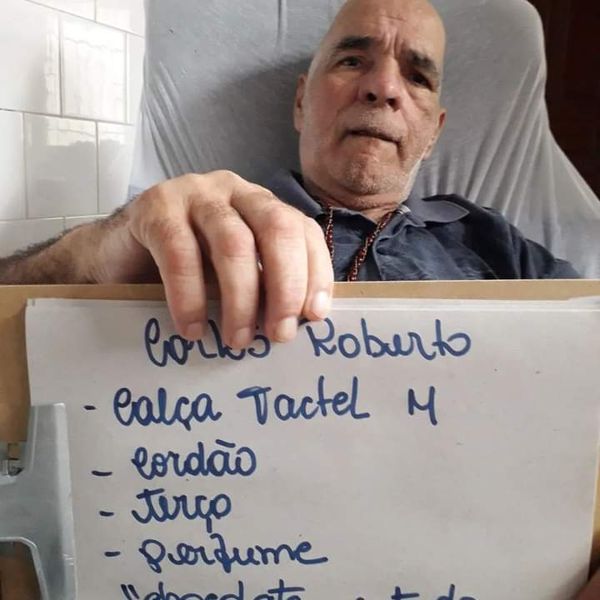 Carlos Roberto
- Calça Tactel M
- Cordão
- Terço
- Perfume